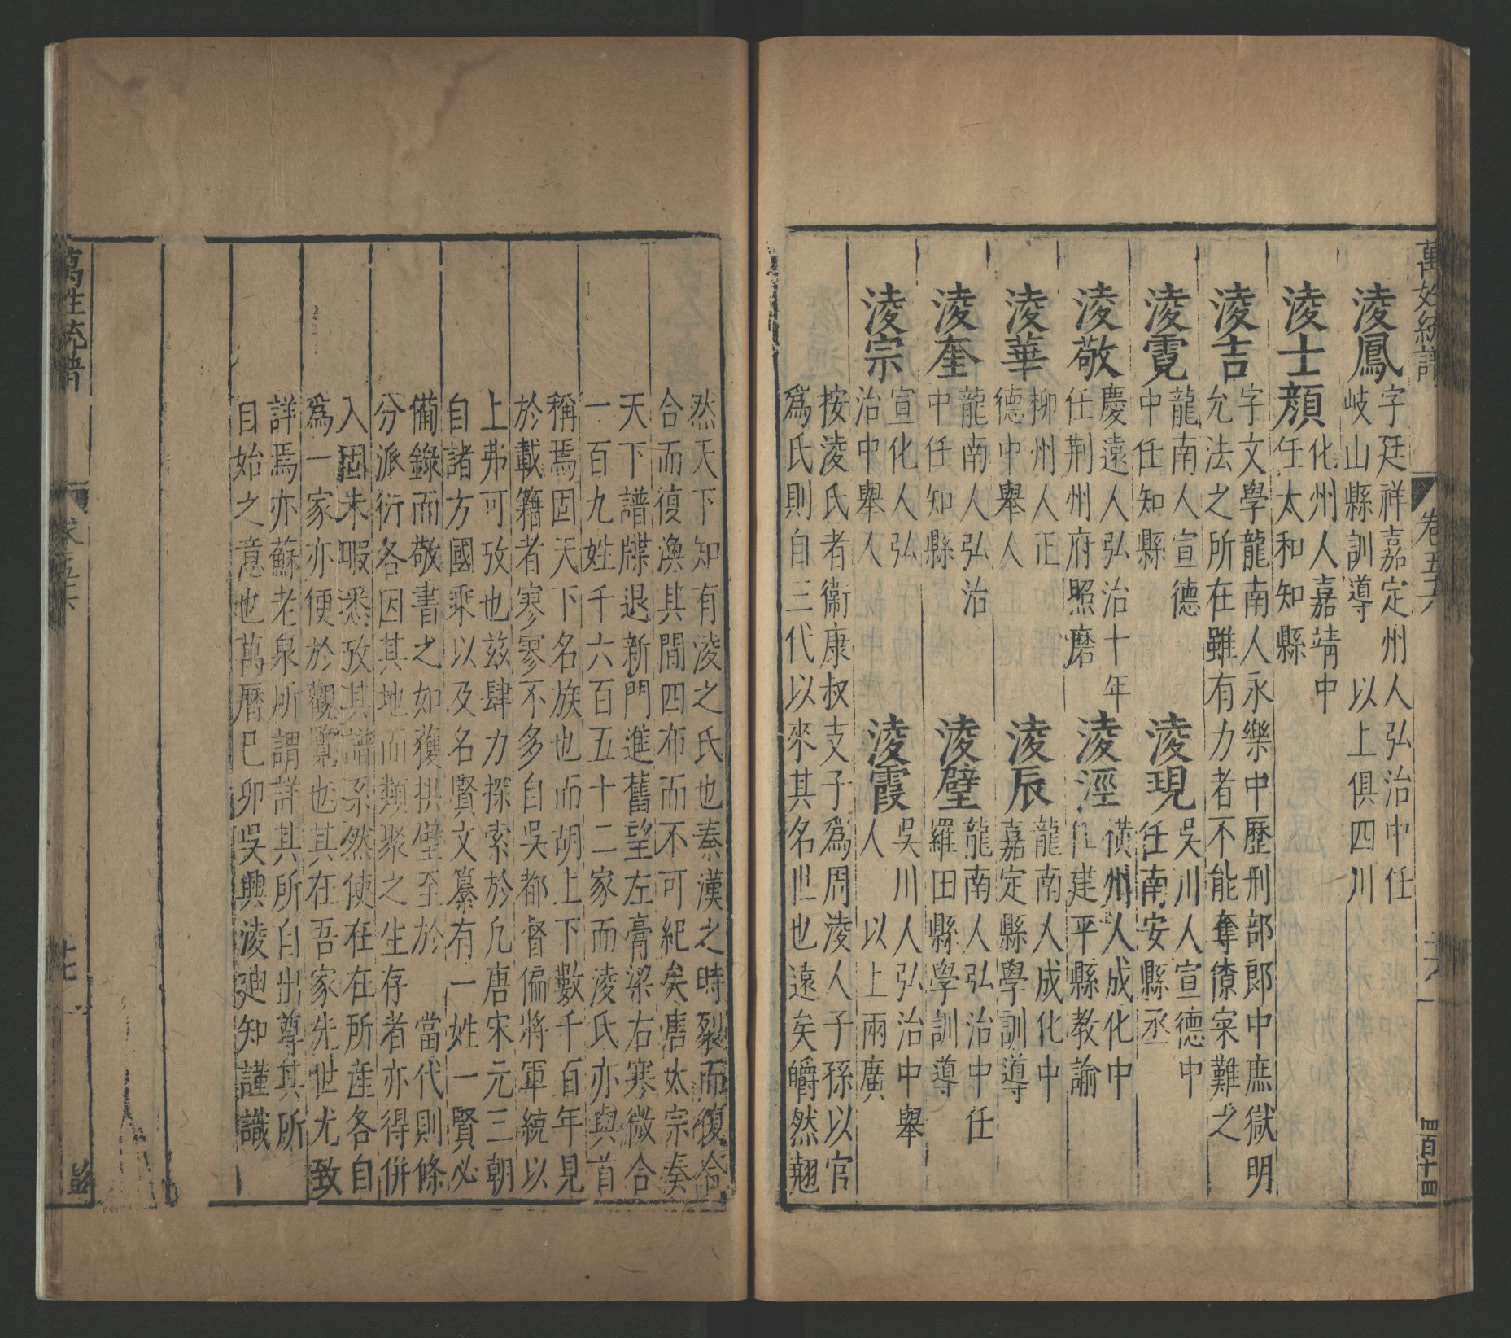 萬姓統譜
卷五十六
凌鳳字廷祥嘉定州人弘治中任
岐山縣訓導 以上俱四川
凌士顏化州人嘉靖中
任太和知縣
凌吉字文學龍南人永樂中歷刑部郎中庶獄明
允法之所在雖有力者不能奪僚寀難之
凌霓龍南人宣德
中任知縣
凌現吳川人宣德中
任南安縣丞
凌敬慶遠人弘治十年
任荆州府照磨
凌涇橫州人成化中
任建平縣教諭
凌華柳州人正
德中舉人
凌辰龍南人成化中
嘉定縣學訓導
凌奎龍南人弘治
中任知縣
凌壁龍南人弘治中任
羅田縣學訓導
凌宗宣化人弘
治中舉人
凌霞吳川人弘治中舉
人 以上兩廣
按凌氏者衞康叔支子為周凌人子孫以官
爲氏則自三代以來其名世也遠矣皭然翹
然天下知有凌之氏也秦漢之時裂而復合
合而復渙其間四布而不可紀矣唐太宗奏
天下譜牒退新門進舊望左膏梁右寒微合
一百九姓千六百五十二家而凌氏亦與首
稱焉固天下名族也而胡上下數千百年見
於載籍者寥寥不多自吳都督偏將軍統以
上弗可攷也玆肆力探索於凡唐宋元三朝
自諸方國乘以及名賢文纂有一姓一賢必
備錄而敬書之如獲拱璧至於 當代則條
分派衍各因其地而類聚之生存者亦得併
入固未暇悉攷其譜系然使在在所產各自
爲一家亦便於觀覽也其在吾家先世尤致
詳焉亦蘇老泉所謂詳其所自出尊其所
自始之意也萬曆己卯吳興凌迪知謹識
萬姓統譜